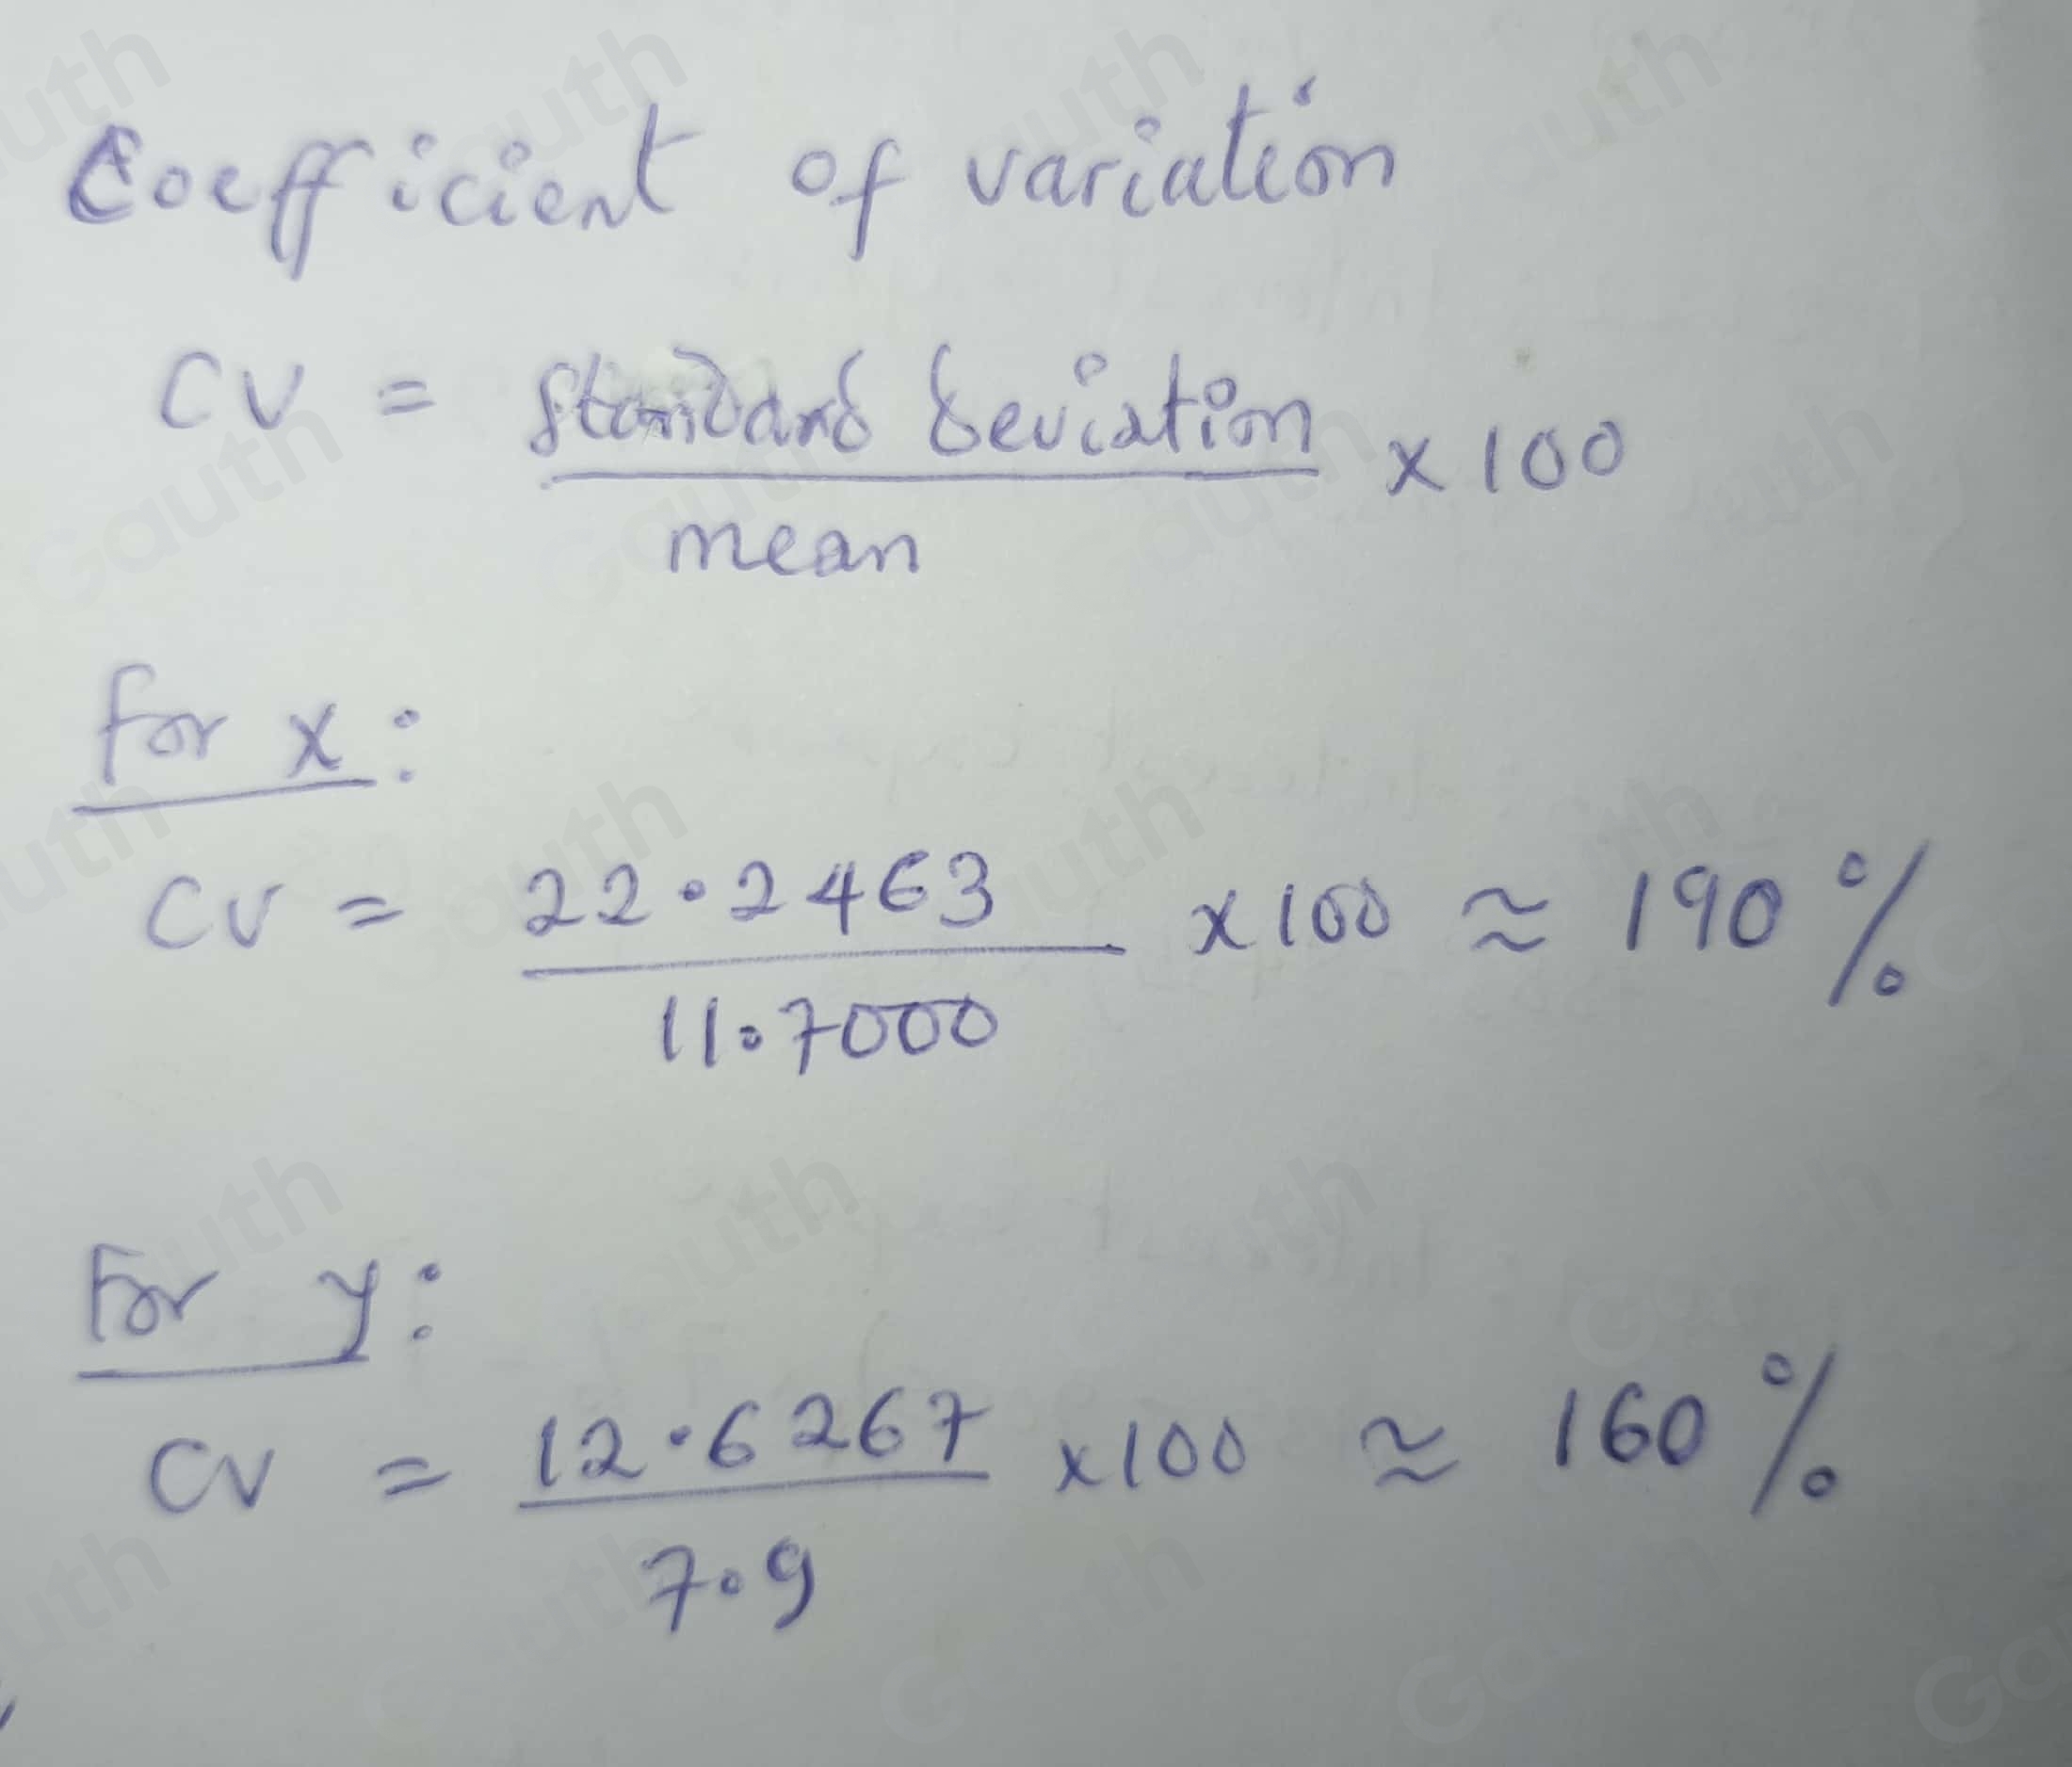 Coefficient of variation
CV = standard deviation / mean × 100
For x:
CV = 22.2463 / 11.7000 × 100 ≈ 190%
For y:
CV = 12.6267 / 7.9 × 100 ≈ 160%